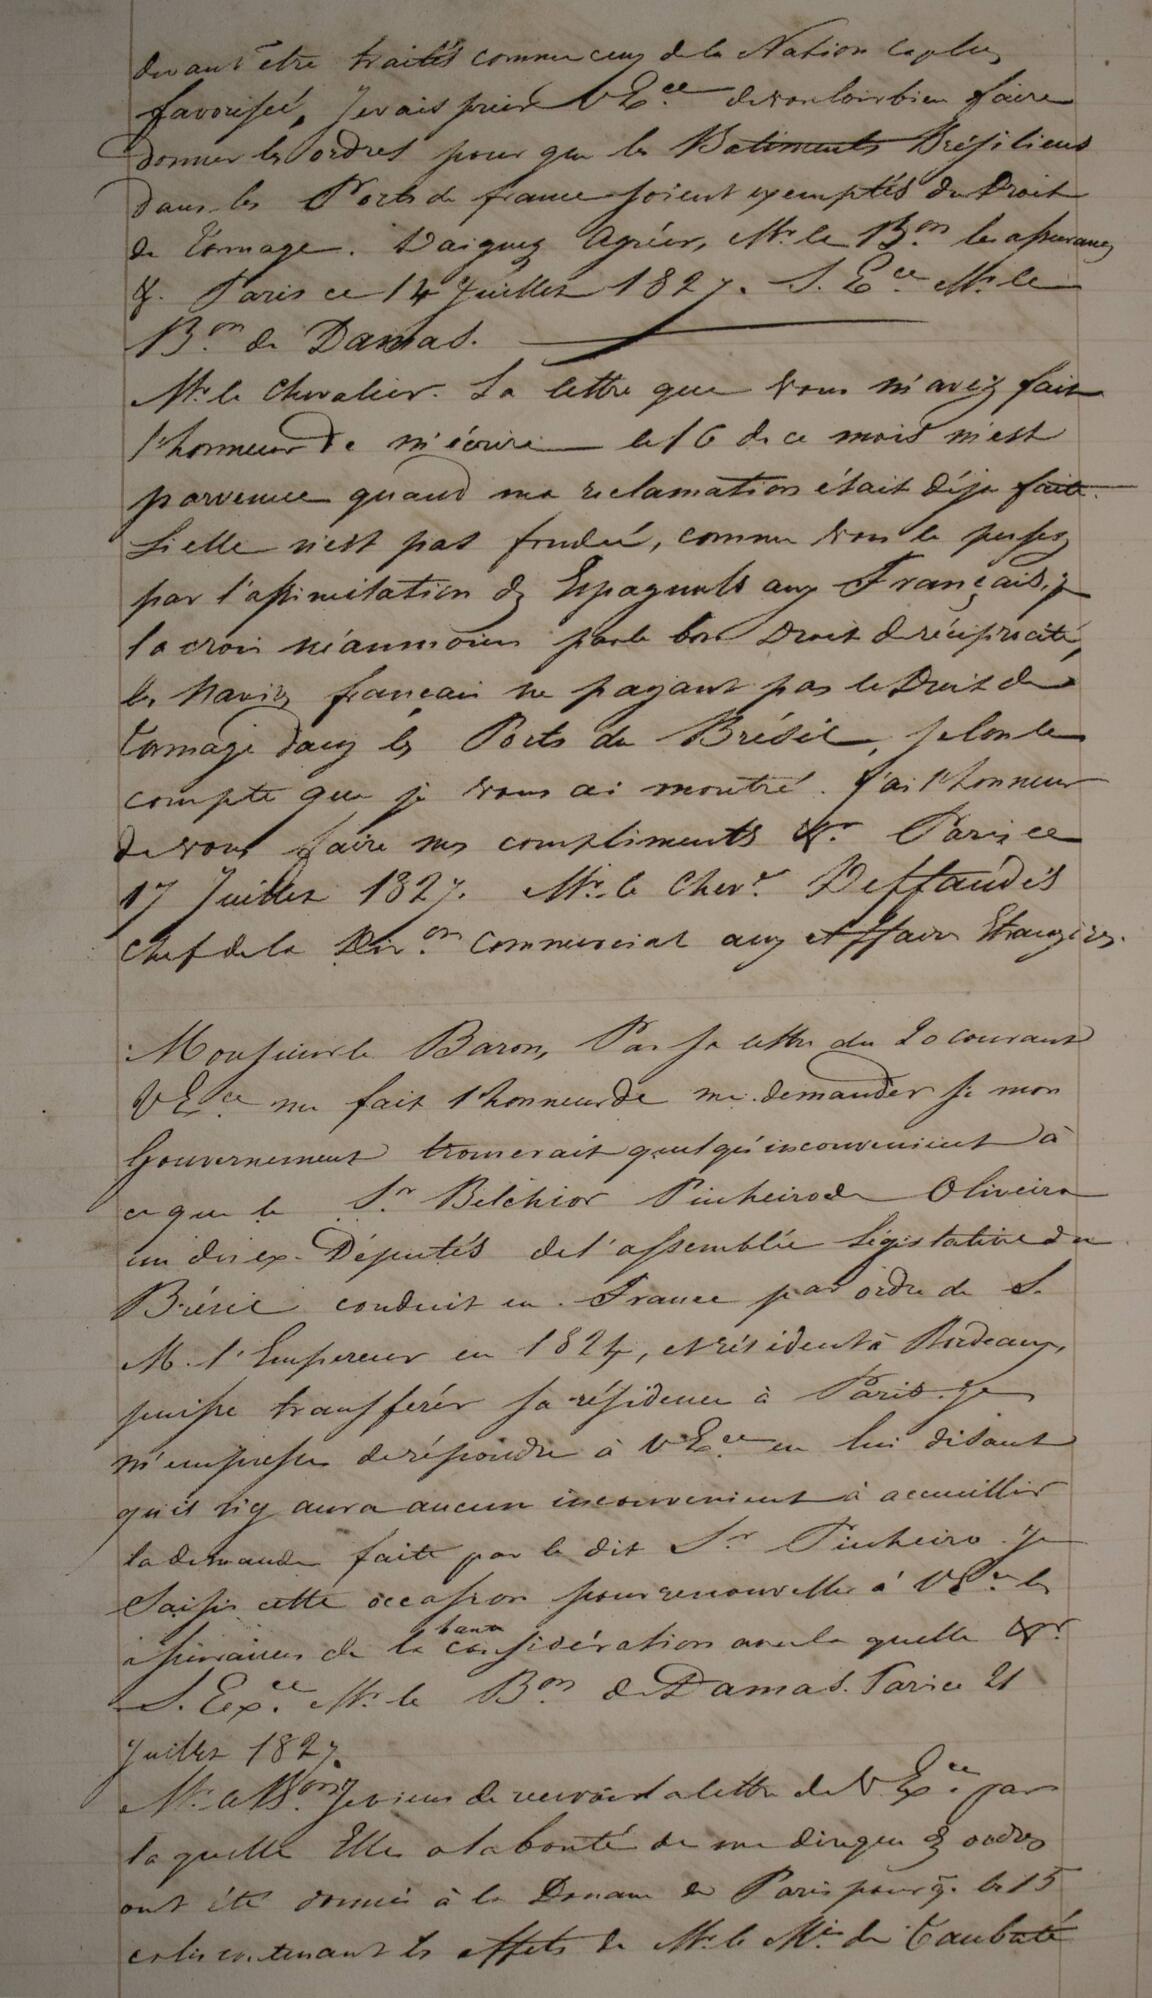 devant être traités comme ceux de la Nation la plus
favorisée, Je vais prier V Ex.ce de vouloir bien faire
donner les ordres pour que les Batiments Brésiliens
dans les Ports de france soient exemptés du Droit
de Tonnage. Daignez Agréer, Mr. le B.on les assurances
&. Paris ce 14 Juillet 1827. S. E.ce Mr. le
B.on de Damas.
Mr. le Chevalier. La lettre que vous m'avez fait
l'honneur de m'écrire le 16 de ce mois m'est
parvenue quand ma reclamation était déja faite.
Si elle n'est pas fondée, comme vous le pensez
par l'assimilation des Espagnols aux Français, je
la crois néanmoins par le bon Droit de réciprocité,
les Navires français ne payant pas le Droit de
Tonnage dans les Ports du Brésil, selon le
compte que je vous ai montré. J'ai l'honneur
de vous faire mes compliments &r. Paris ce
17 Juillet 1827. Mr. le Chev.r Deffaudis
Chef de la Div.on Commercial aux Affaires Etrangères.
Monsieur le Baron, Par sa lettre du 20 courant
V E.ce me fait l'honneur de me demander si mon
Gouvernement trouverait quelqu'inconvenient à
ce que le S.r Belchior Pinheiro de Oliveira
un des ex-Députés de l'assemblée Législative du
Brésil conduit en France par ordre de S.
M. l'Empereur en 1824, et résident à Bordeaux,
puisse transférér sa résidence à Paris. Je
m'empresse de répondre à V E.ce en lui disant
qu'il n'y aura aucun inconvenient à accueillir
la demande faite par le dit S.r Pinheiro. Je
Saisis cette occasion pour renouveller à V E.ce les
assurances de la haute considération avec la quelle &r.
S. Exc.ce Mr. le B.on de Damas. Paris ce 21
Juillet 1827.
Mr. le B.on Je viens de recevoir la lettre de V Ex.ce par
la quelle Elle a la bonté de me dire que des ordres
ont été donnés à la Douane de Paris pour q. les 15
colis contenant les effets de Mr. le M.is de Taubaté